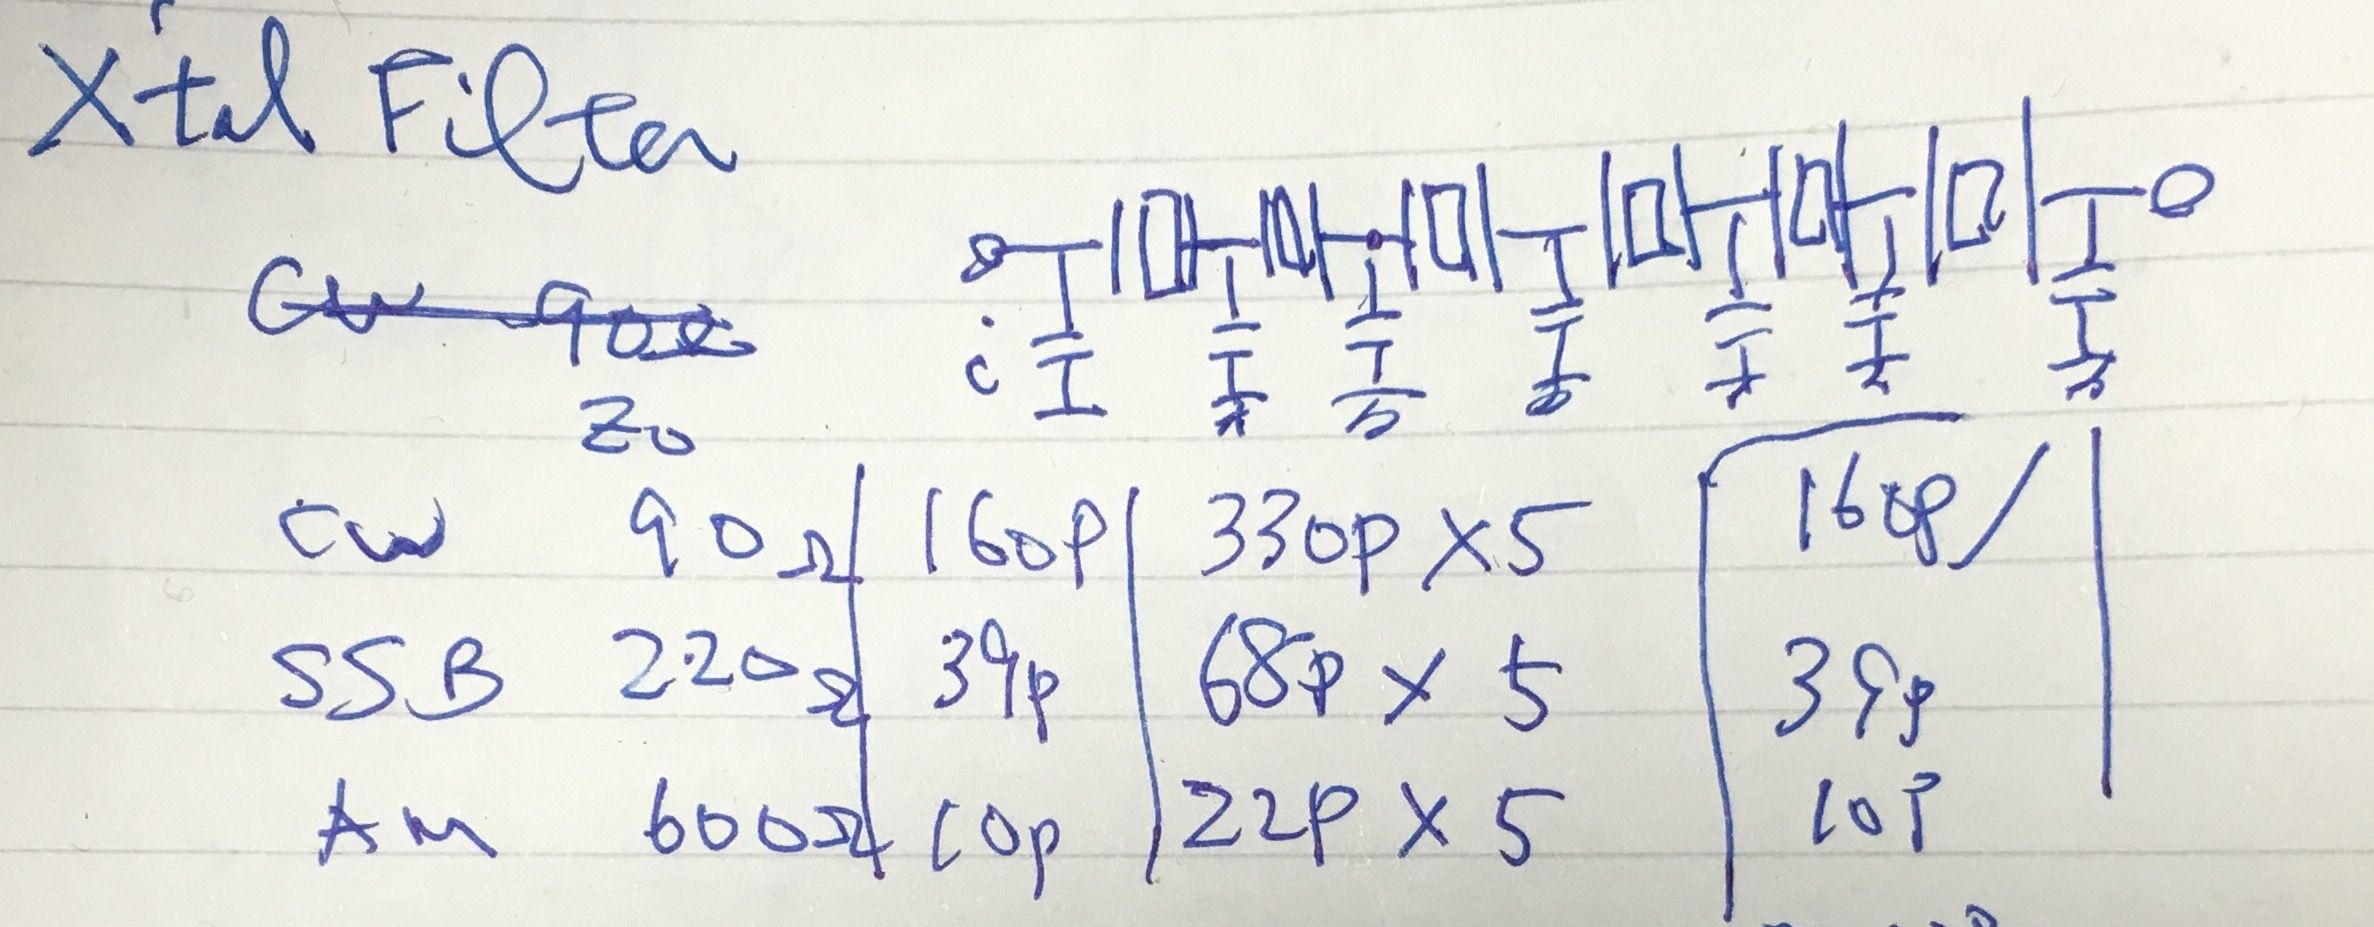 X'tal Filter
CW 90Ω
C
Z0
CW 90Ω 160p 330p x 5 160p
SSB 220Ω 39p 68p x 5 39p
AM 600Ω 10p 22p x 5 10p